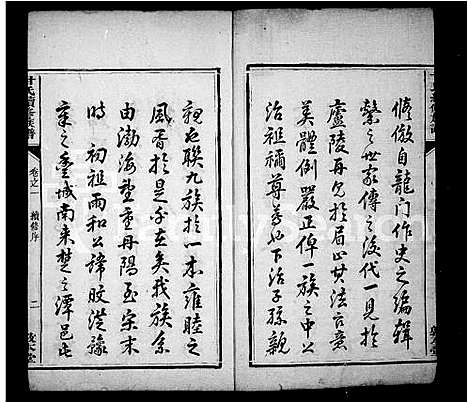 脩倣自龍门作史之编辑
繫之世家傳之後代一見於
廬陵再見於眉山其法言意
美體例嚴正俾一族之中公
治祖禰尊尊也下治子孫親
親也聯九族於一本雍睦之
風胥於是乎在矣我族系
由渤海望重丹陽至宋末
時 初祖雨和公諱旼從豫
章之豐城南来楚之潭邑屯
甘氏續修族譜
卷之一 續修序 二
敦本堂